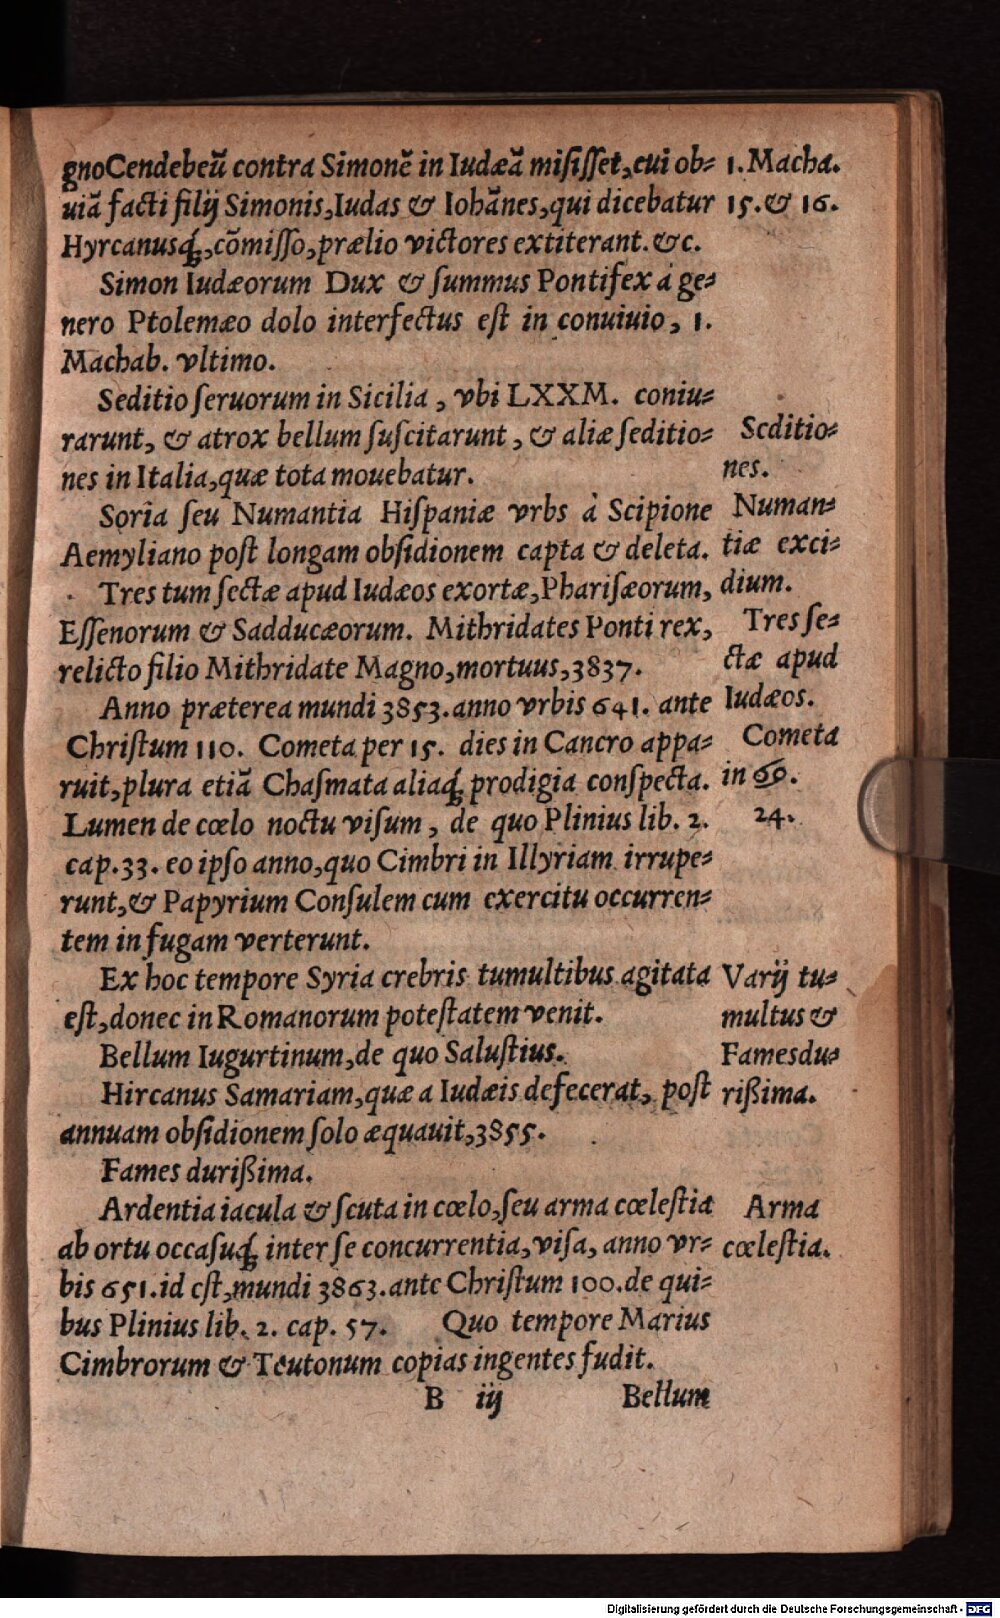 gnoCendebeū contra Simonē in Iudæā misisset, cui ob-
uiā facti filij Simonis, Iudas & Iohānes, qui dicebatur
Hyrcanusq́;, cōmisso, prælio victores extiterant. &c.
Simon Iudæorum Dux & summus Pontifex à ge-
nero Ptolemæo dolo interfectus est in conuiuio, 1.
Machab. vltimo.
Seditio seruorum in Sicilia, vbi LXXM. coniu-
rarunt, & atrox bellum suscitarunt, & aliæ seditio-
nes in Italia, quæ tota mouebatur.
Soria seu Numantia Hispaniæ vrbs à Scipione
Aemyliano post longam obsidionem capta & deleta.
Tres tum sectæ apud Iudæos exortæ, Pharisæorum,
Essenorum & Sadducæorum. Mithridates Ponti rex,
relicto filio Mithridate Magno, mortuus, 3837.
Anno præterea mundi 3853. anno vrbis 641. ante
Christum 110. Cometa per 15. dies in Cancro appa-
ruit, plura etiā Chasmata aliaq́; prodigia conspecta.
Lumen de cœlo noctu visum, de quo Plinius lib. 2.
cap. 33. eo ipso anno, quo Cimbri in Illyriam irrupe-
runt, & Papyrium Consulem cum exercitu occurren-
tem in fugam verterunt.
Ex hoc tempore Syria crebris tumultibus agitata
est, donec in Romanorum potestatem venit.
Bellum Iugurtinum, de quo Salustius.
Hircanus Samariam, quæ a Iudæis defecerat, post
annuam obsidionem solo æquauit, 3855.
Fames durißima.
Ardentia iacula & scuta in cœlo, seu arma cœlestia
ab ortu occasuq́; inter se concurrentia, visa, anno vr-
bis 651. id est, mundi 3863. ante Christum 100. de qui-
bus Plinius lib. 2. cap. 57. Quo tempore Marius
Cimbrorum & Teutonum copias ingentes fudit.
B iij Bellum
1. Macha.
15. & 16.
Seditio-
nes.
Numan-
tiæ exci-
dium.
Tres se-
ctæ apud
Iudæos.
Cometa
in ♋.
24.
Varij tu-
multus &
Famesdu-
rißima.
Arma
cœlestia.
Digitalisierung gefördert durch die Deutsche Forschungsgemeinschaft - DFG